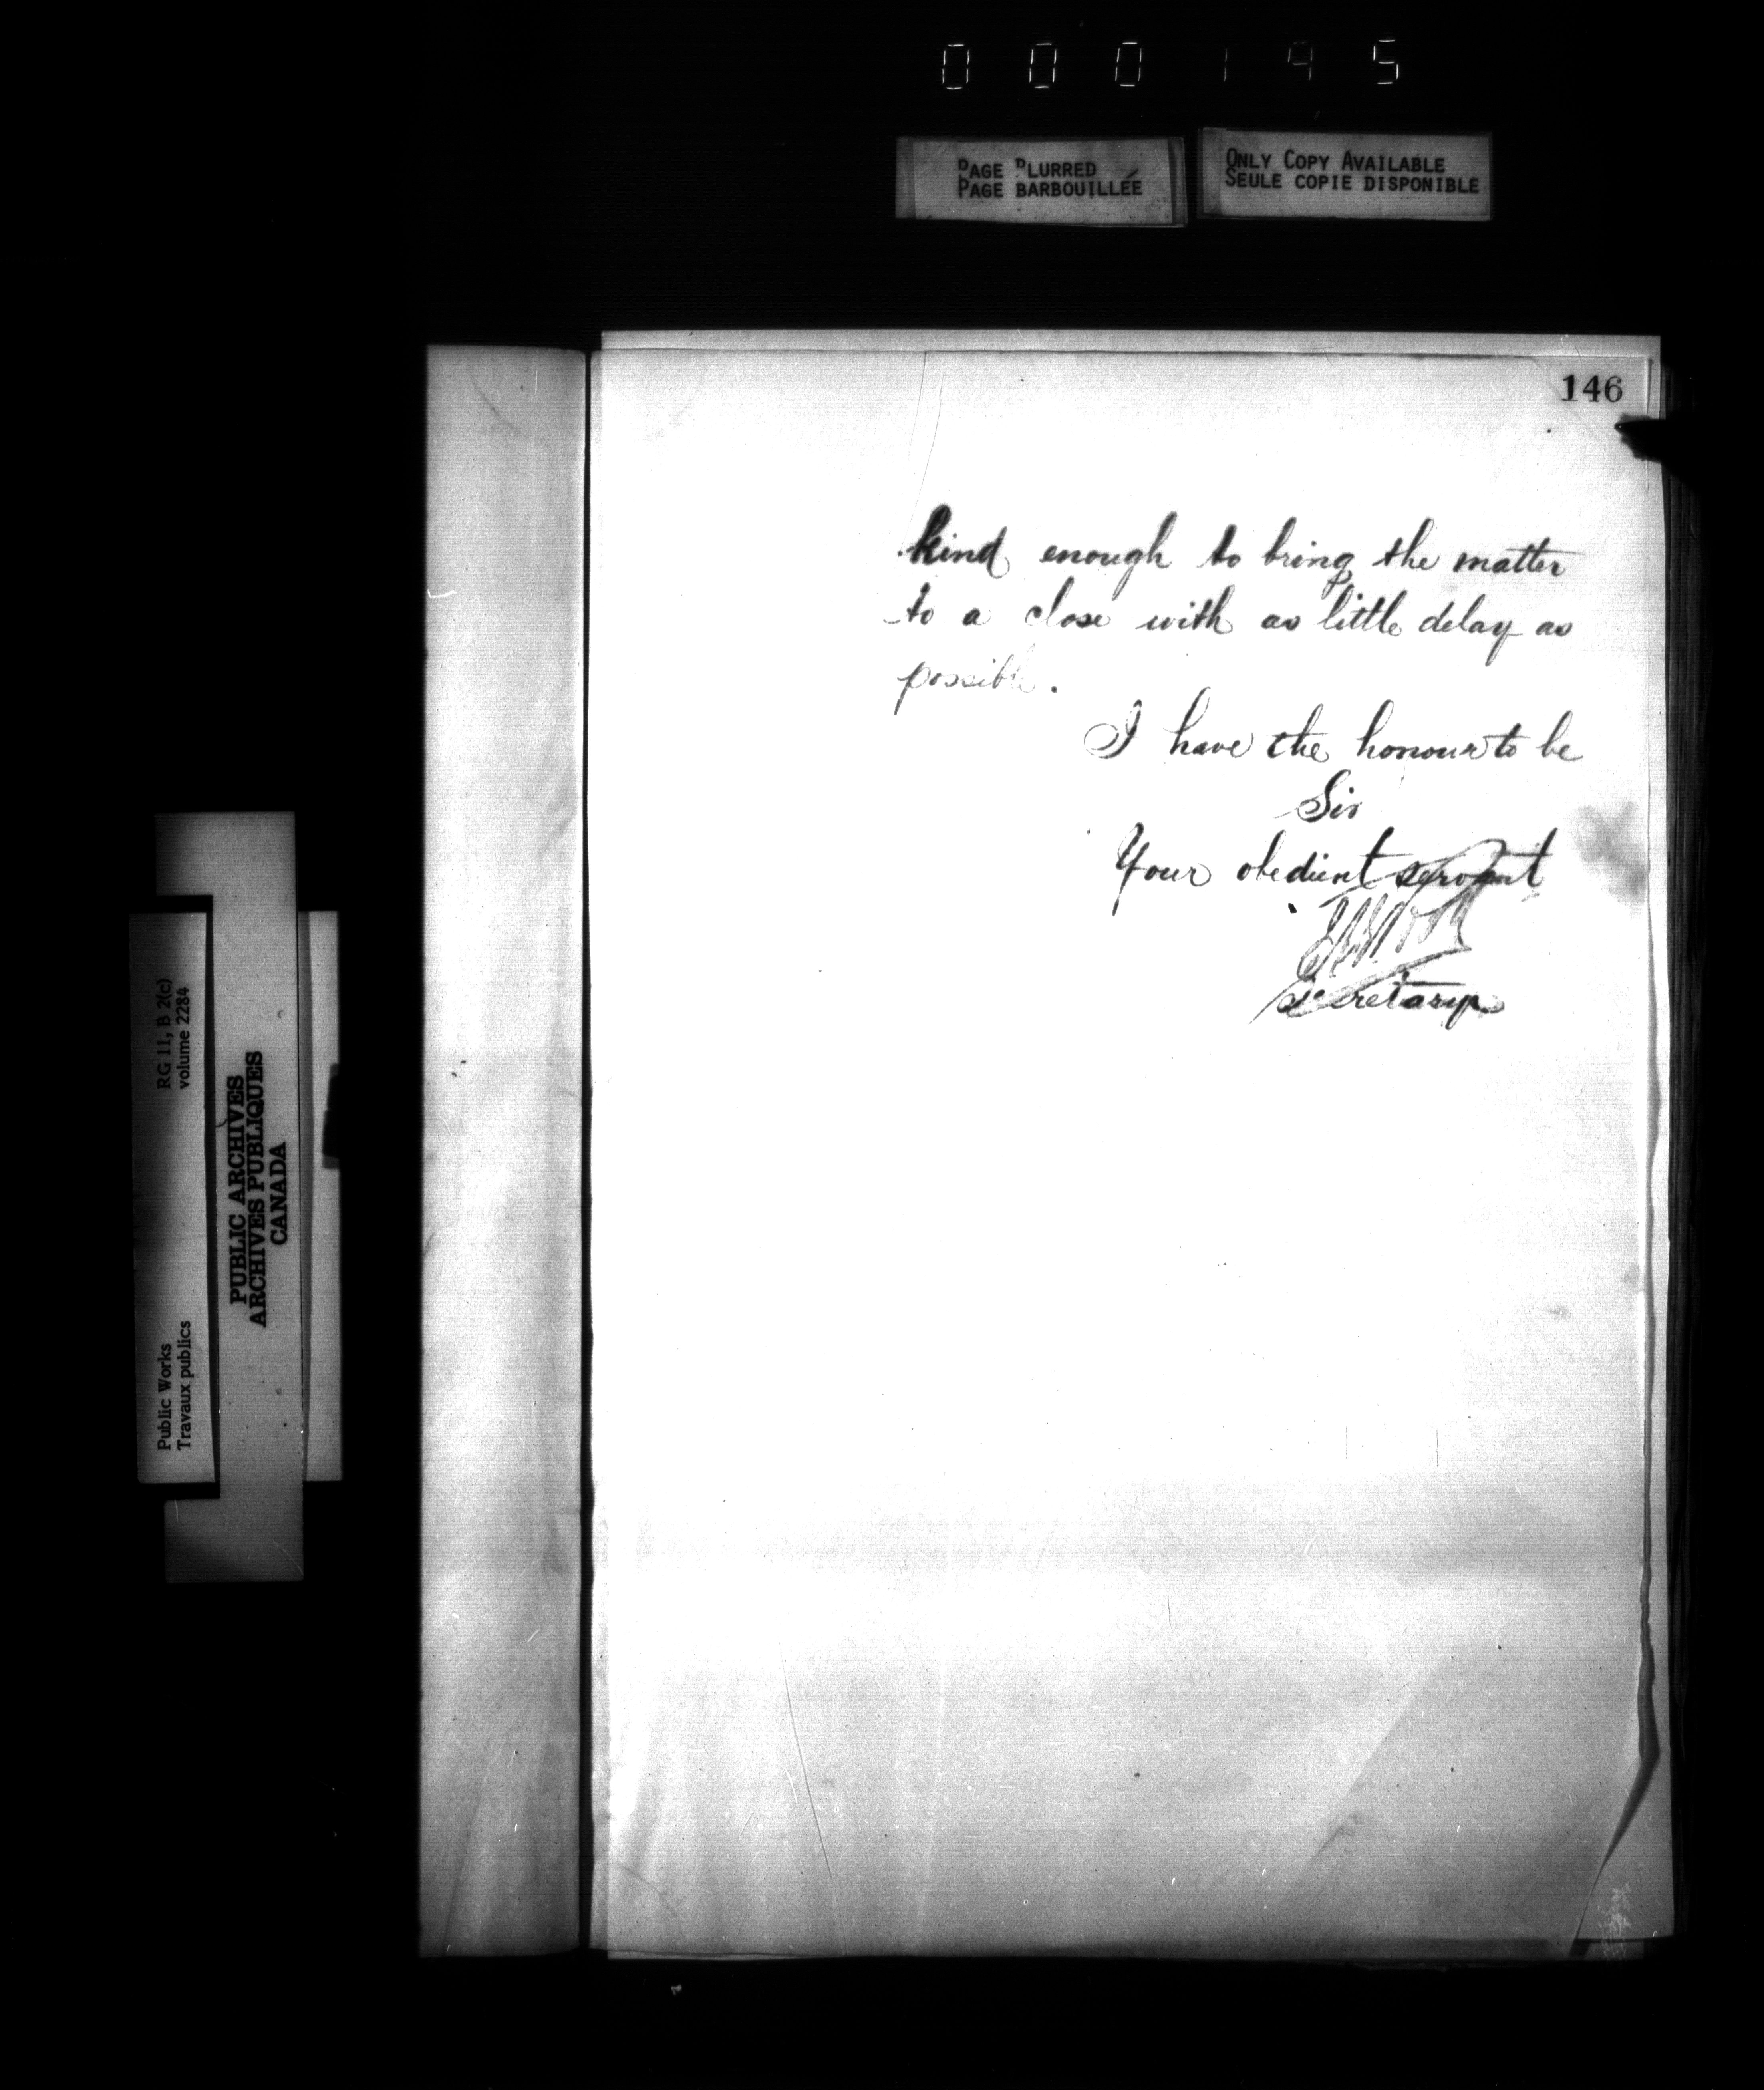 000195
PAGE BLURRED
PAGE BARBOUILLÉE
ONLY COPY AVAILABLE
SEULE COPIE DISPONIBLE
146
kind enough to bring the matter
to a close with as little delay as
possible.
I have the honour to be
Sir
Your obedient servant
Secretary
Public Works
Travaux publics
RG 11, B 2(c)
volume 2284
PUBLIC ARCHIVES
ARCHIVES PUBLIQUES
CANADA